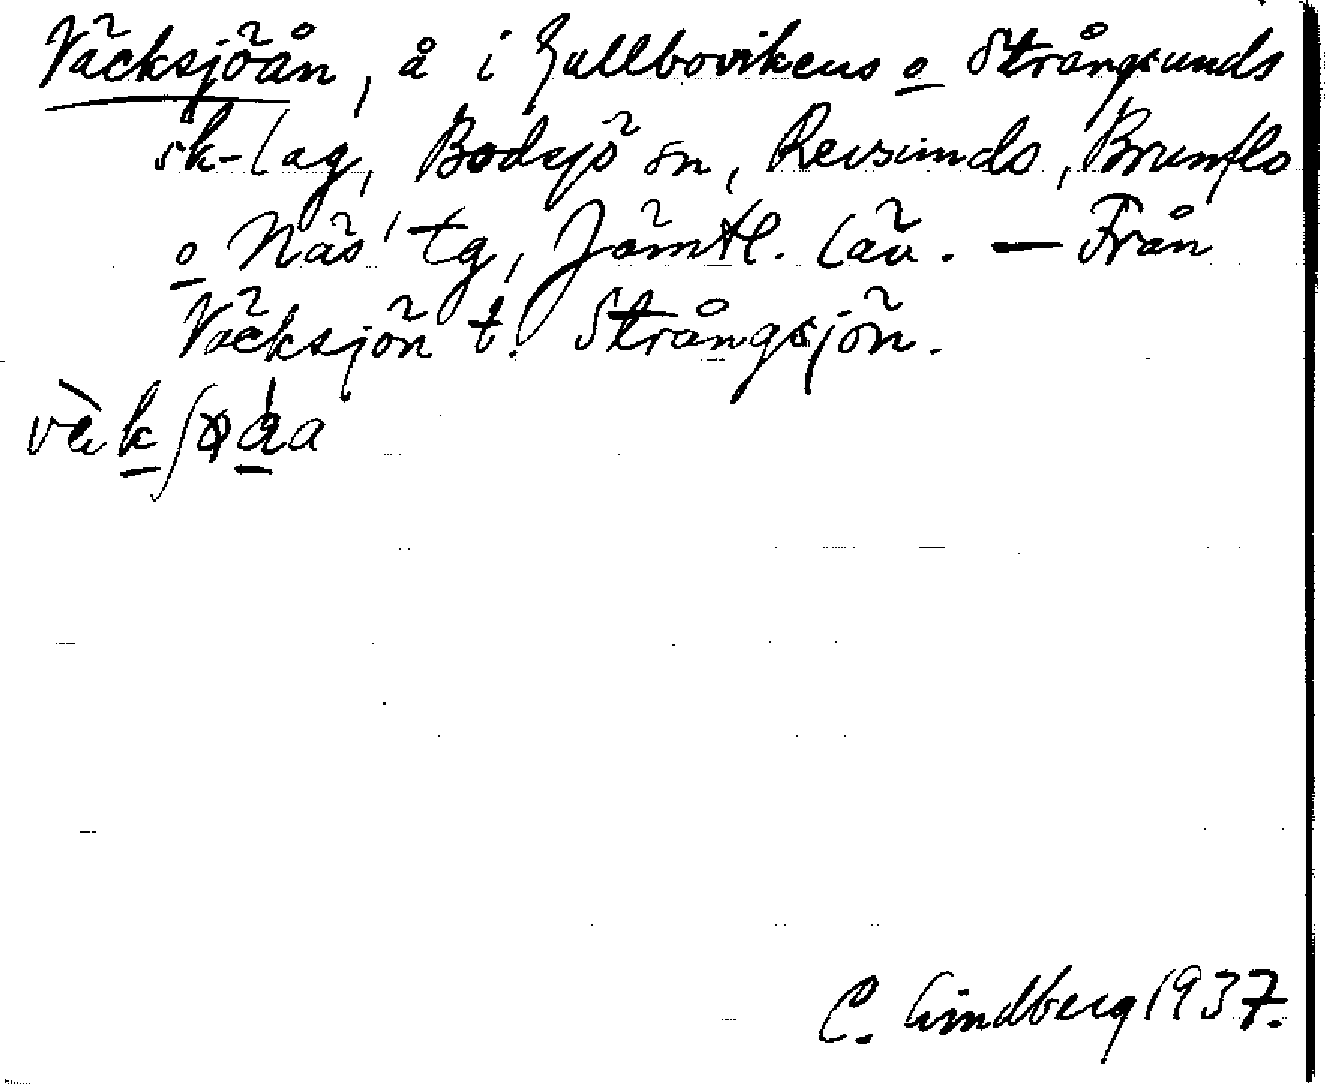 Väcksjöån, å i Gallbovikens o Strångsunds
sk-lag, Bodsjö sn, Revsunds, Brunflo
o Näs' tg, Jämtl. län. — Från
Väcksjön t. Strångsjön.
C. Lindberg 1937.